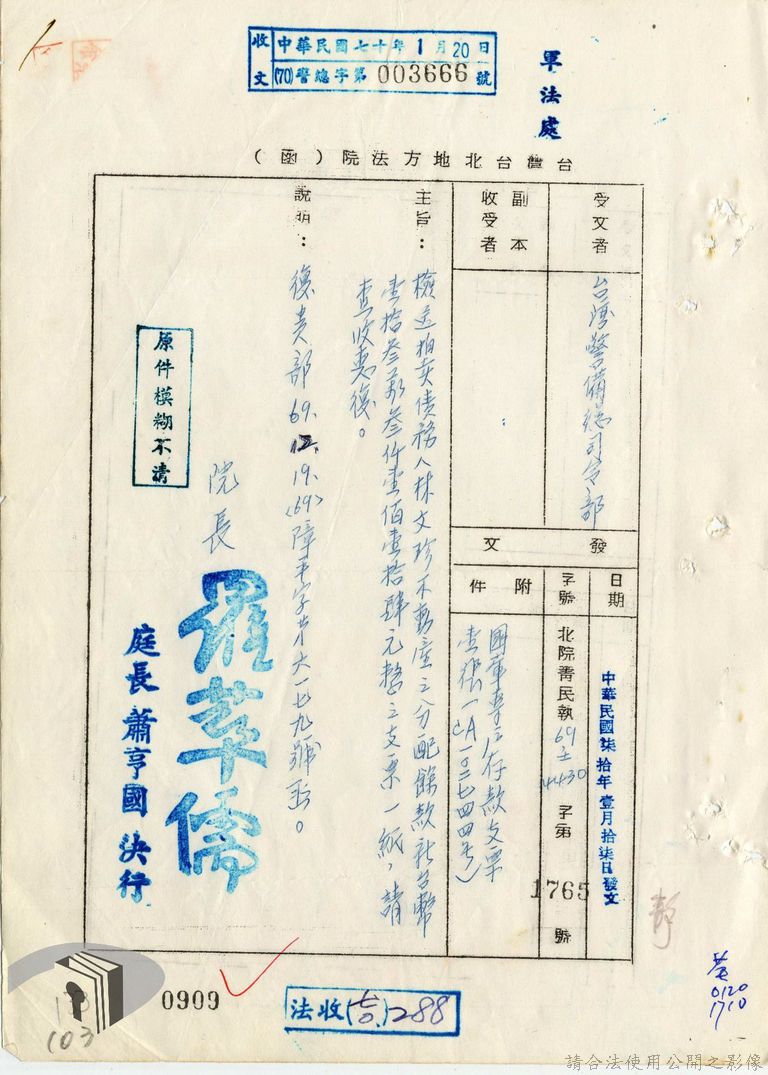 收文
中華民國七十年1月20日
(70)警總字第003666號
軍法處
台灣台北地方法院（函）
受文者
台灣警備總司令部
副本
收受者
發文
日期
中華民國柒拾年壹月拾柒日發文
字號
北院菁民執69
4430
字第
1765
號
附件
國軍專戶存款支票
主旨：
檢送拍賣債務人林文珍不動產之分配餘款新台幣
壹拾叁萬叁仟壹佰壹拾肆元整之支票一紙，請
查收惠復。
說明：
復貴部69.12.19.(69)障平字第六一七九號函。
原件模糊不清
院長
羅萃儒
庭長蕭亨國決行
0909
法收(七〇)288
103
0120
1710
請合法使用公開之影像